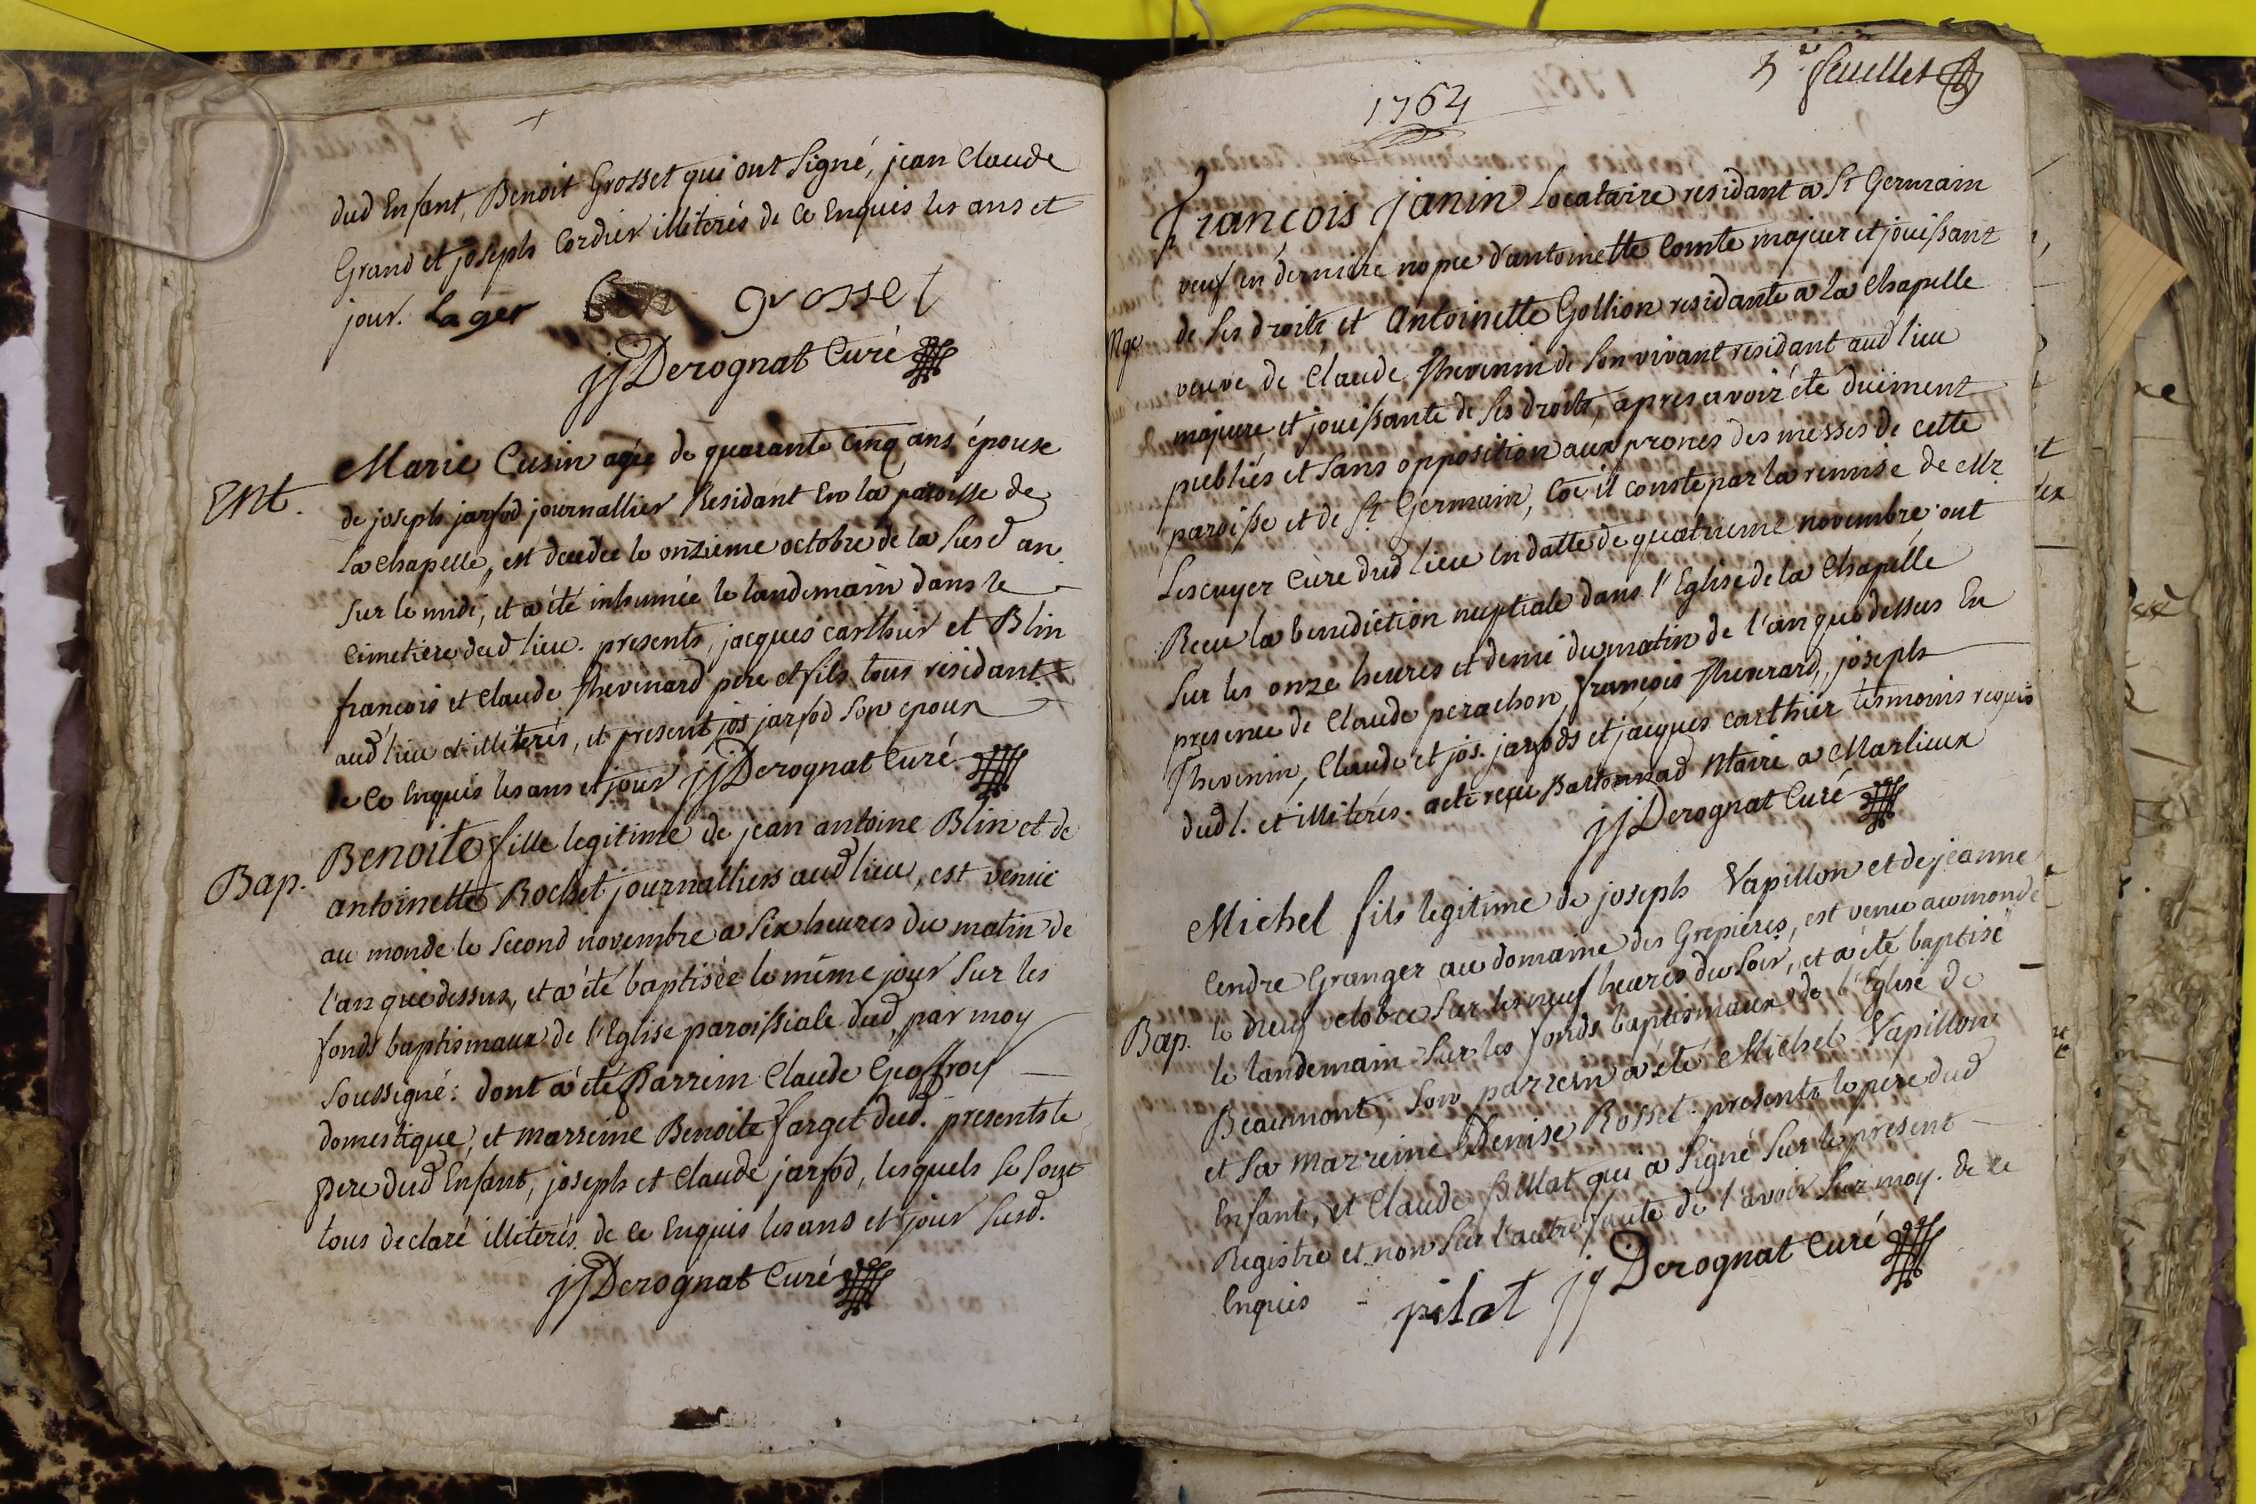 dud Enfant, Benoit Grosset qui ont Signé, jean Claude
Grand et joseph Cordier illiterés de ce Enquis les ans et
jour. Lager grosset
jj Derognat Curé
Ent.
Marie Cusin agée de quarante Cinq ans, épouse
de joseph jarfod journallier Residant En la paroisse de
La Chapelle, est decedee le onzieme octobre de la Susd an
sur le midi, et a été inhumée le landemain dans le
Cimetiere dud lieu. presents, jacques carthier et Blin
francois et Claude Thevenard pere et fils tous residant
aud lieu et illiterés, et present jos jarfod Son epoux
de ce Enquis les ans et jour jj Derognat Curé
Bap.
Benoite fille legitime de jean antoine Blin et de
antoinette Rochet journalliers aud lieu, est venue
au monde le Second novembre a Six heures du matin de
l'an que dessus, et a été baptisée le même jour Sur les
fonds baptismaux de l'Eglise paroissiale dud, par moy
Soussigné: dont a été Parrein Claude Geoffroy
domestique, et marreine Benoite farget dud. presents le
pere dud Enfant, joseph et Claude jarfod, lesquels Se Sont
tous declaré illiterés. de ce Enquis les ans et jour Susd.
jj Derognat Curé
1764
5.e feuillet
François janin Locataire residant a St Germain
veuf en derniere nopce d'antoinette Comte majeur et jouissant
Mge
de Ses droits et Antoinette Gollion residante a la Chapelle
veuve de Claude Thevenin de Son vivant residant aud lieu
majeure et jouissante de Ses droits, apres avoir été duëment
publiés et Sans opposition aux prones des messes de cette
paroisse et de St Germain, Coe il conste par la remise de Mr
Lescuyer Cure dud lieu En datte de quatrieme novembre ont
Recu la benediction nuptiale dans l'Eglise de la Chapelle
Sur les onze heures et demie du matin de l'an que dessus En
presence de Claude perachon, françois Thevenard, joseph
Thevenin, Claude et jos. jarfods et jacques carthier tesmoins requis
dud l. et illiterés. acte reçu Bartonnad Ntaire a Marlieux
jj Derognat Curé
Michel fils legitime de joseph Vapillon et de jeanne
Cendre Granger au domaine des Grepieres, est venu au monde
Bap.
le dieuf octobre Sur les neuf heures du Soir, et a été baptisé
le landemain Sur les fonds baptismaux de l'Eglise de
Beaumont, Son parrein a été Michel Vapillon
et Sa marreine Denise Rosset: presents le pere dud
Enfant, et Claude Pillat qui a Signé Sur le present
Registre et non Sur l'autre faute de l'avoir Sur moy. de ce
Enquis pilat jj Derognat Curé